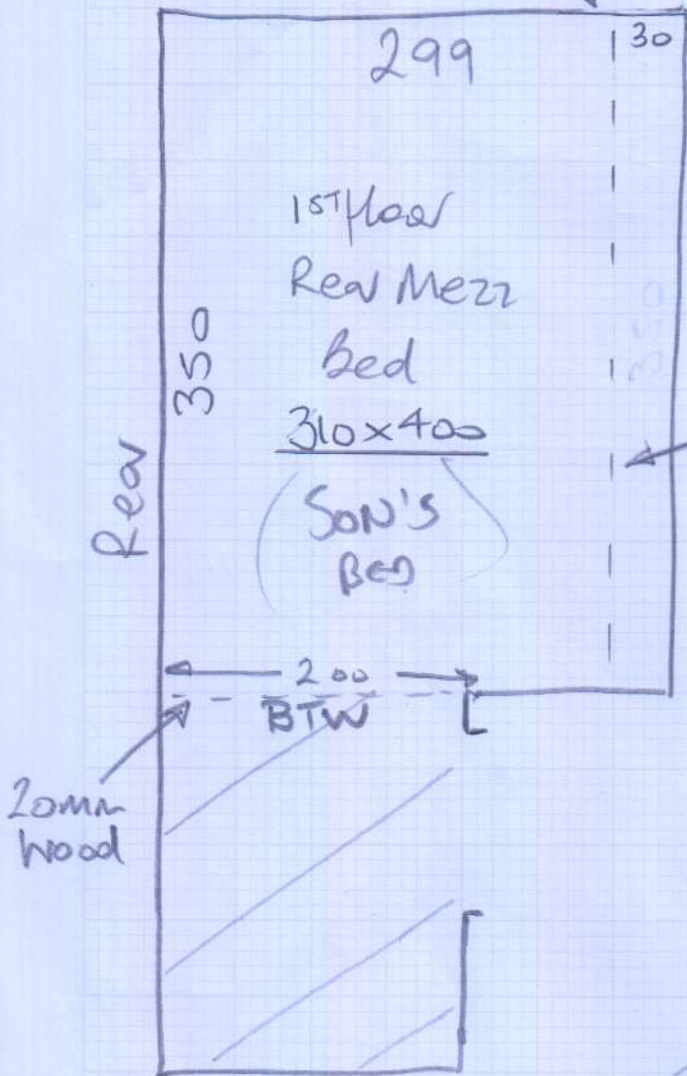 299
30
1ST floor
Rear Mezz
Bed
310x400
(SON'S
BED)
350
350
Rear
200
BTW
20mm
Wood